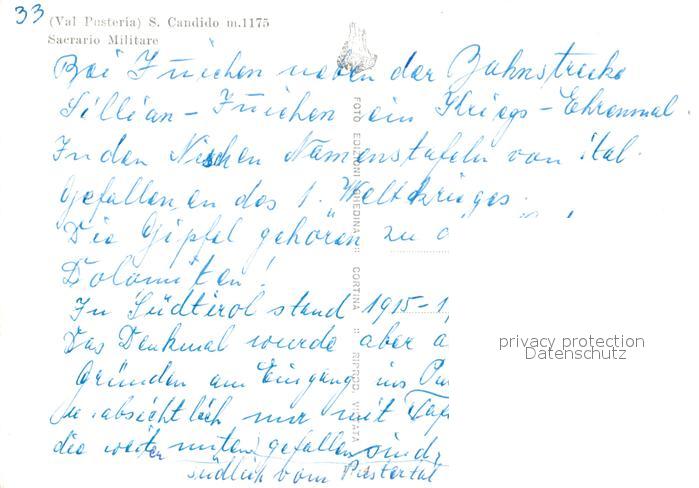 33
(Val Pusteria) S. Candido m.1175
Sacrario Militare
Bei Inichen neben der Bahnstrecke
Sillian - Inichen ein Kriegs - Ehrenmal.
In den Nischen Namenstafeln von ital.
Gefallenen des 1. Weltkrieges.
Die Gipfel gehören zu d
Dolomiten!
In Südtirol stand 1915-1
Das Denkmal wurde aber a
Gründen am Eingang ins Pu
u. absichtlich nur mit Taf
die weiter unten gefallen sind,
südlich vom Pustertal
FOTO EDIZIONI GHEDINA :: CORTINA :: RIPROD. VIETATA
privacy protection
Datenschutz